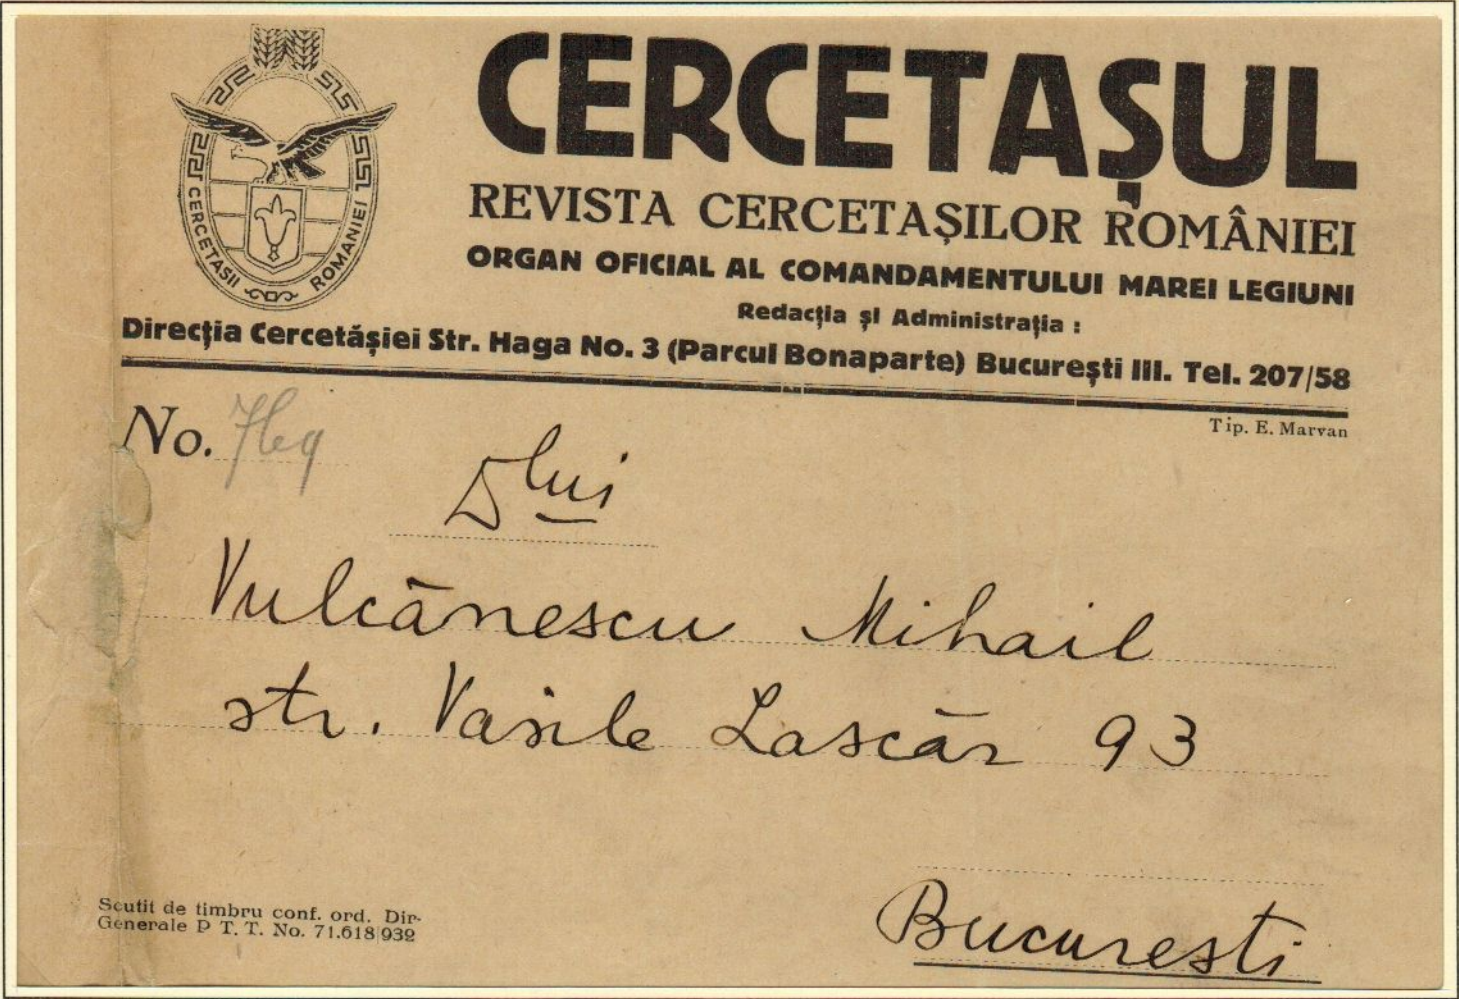 CERCETAȘUL
REVISTA CERCETAȘILOR ROMÂNIEI
ORGAN OFICIAL AL COMANDAMENTULUI MAREI LEGIUNI
CERCETASII ROMANIEI
Redacția și Administrația :
Direcția Cercetășiei Str. Haga No. 3 (Parcul Bonaparte) București III. Tel. 207/58
Tip. E. Marvan
No.
Dlui
Vulcănescu Mihail
str. Vasile Lascăr 93
Bucuresti
Scutit de timbru conf. ord. Dir-
Generale P T. T. No. 71.618/932